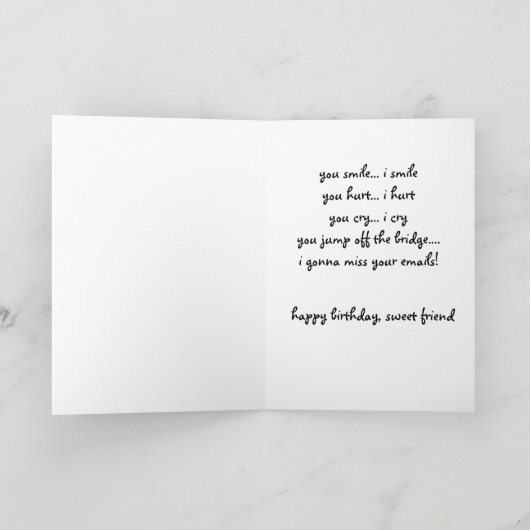 you smile... i smile
you hurt... i hurt
you cry... i cry
you jump off the bridge....
i gonna miss your emails!
happy birthday, sweet friend